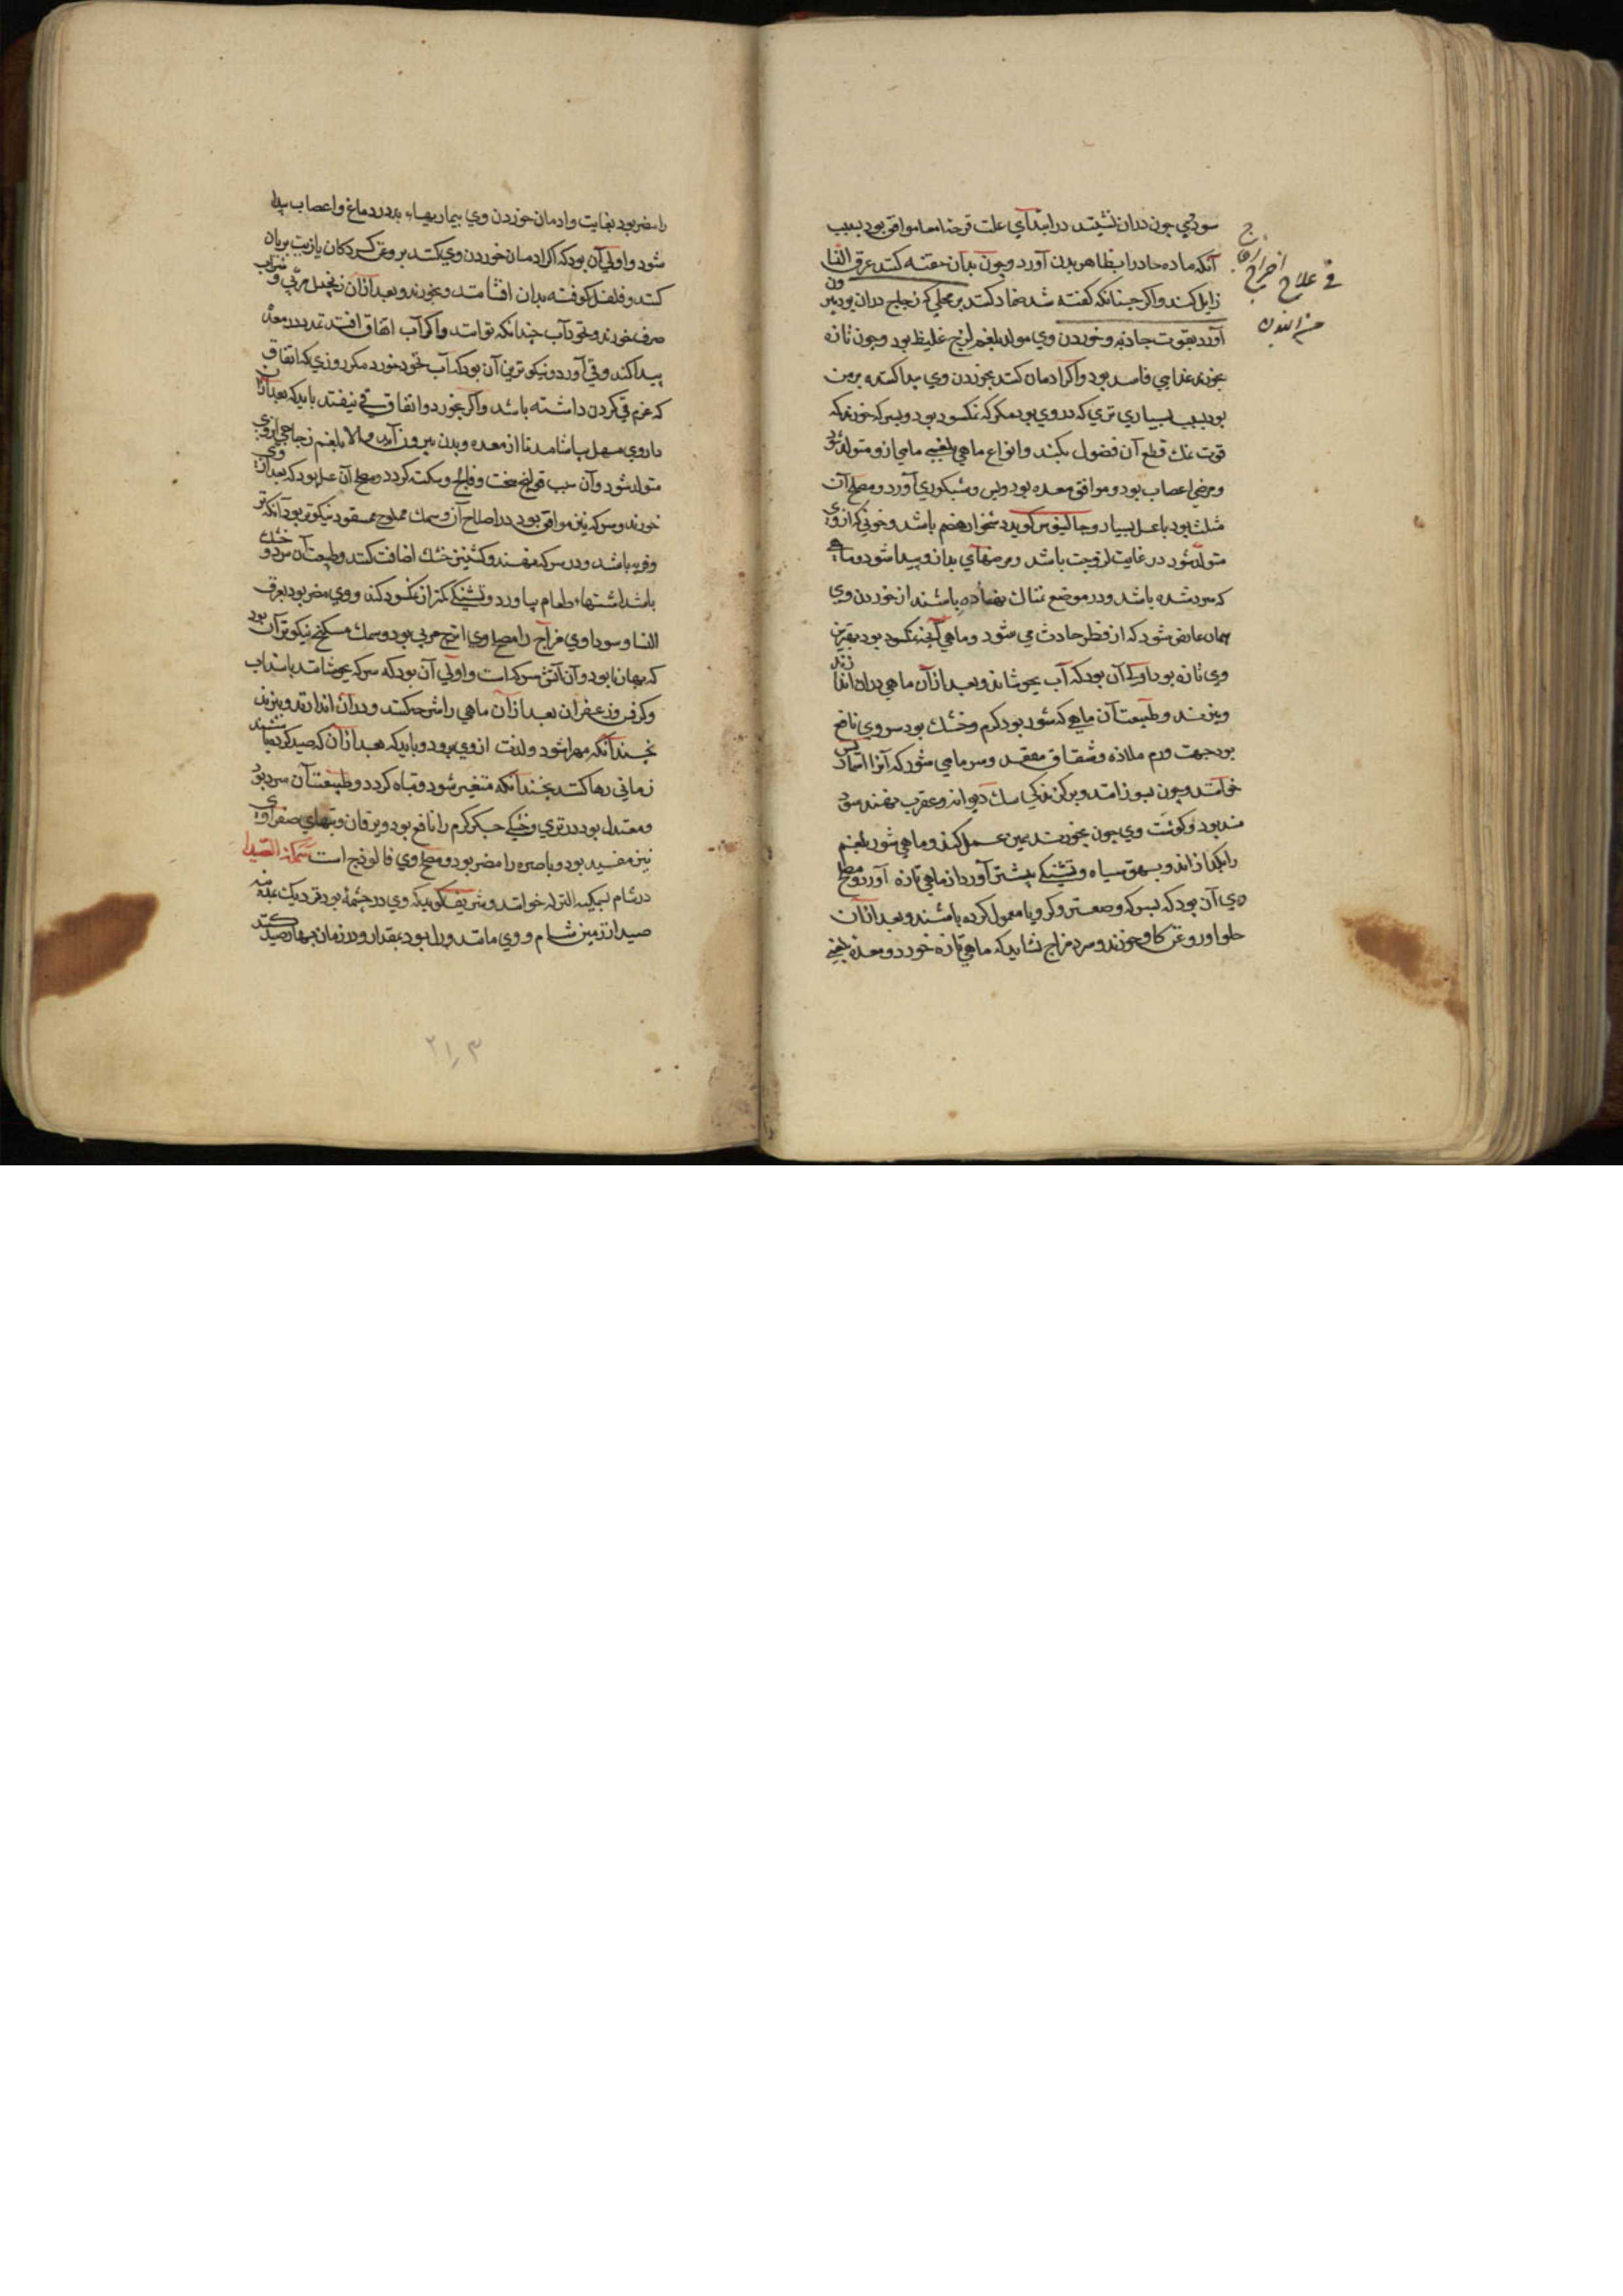 سودئي چون دران نشیند در ابتدآي علت قرحه امعا موافق بود بسبب
آنکه ماده حاد را بظاهر بدن آورد و چون بدان حقنه کنند عرق النسا
زایل کند و اکر چنانکه کفته شد ضماد کنند بر محلي که زجاج دران بود بیرون
آورد بقوت جاذبه و خوردن وي مولد بلغم لزج غلیظ بود و چون تازه
بخورند غذایي فاسد بود و اکر ادمان کنند بخوردن وي پیدا کند برص
بود بسبب بسیاري تري که در وي بود مکر که نمکسود بود و بسرکه خورند که
قوت نمك قطع آن فضول بکند و انواع ماهي بلغمي مایي ازو متولد شود
و مرخي اعصاب بود و موافق معده بود و شبکوري آورد و مصلح آن
مثلث بود با عسل بسیار و جالینوس کوید دشخوار هضم باشد و خوني که از وي
متولد شود در غایت لزوجت باشد و مرضهآي بد ازو پیدا شود و ماهي
که سرد شده باشد و در موضع نمناك نهاده باشند از خوردن وي
همان عارض شود که از فطر حادث مي شود و ماهي آنچه نمکسود بود بهترین
وي تازه بود اولی آن بود که آب بجوشانند و بعد از آن ماهي دران اندازند
و بپزند و طبیعت آن ماهي که شور بود کرم و خشك بود سر وي نافع
بود جهت ورم ملازه و شقاق مقعد و سر ماهي شور که آنرا اسماریس
خوانند و چون بسوزانند و بر کزندکي سك دیوانه و عقرب نهند سود
مند بود و کوشت وي چون بخورند همین عمل کند و ماهي شور بلغم
را بکدازاند و بهق سیاه و تشنکي بیشتر آورد از ماهي تازه آورد و مصلح
وي آن بود که بسرکه و صعتر و کرویا معمول کرده باشند و بعد از آن
حلوا و روغن کاو خورند و سرد مزاج نشاید که ماهي تازه خورد و معده بلغمي
في علاج اخراج
را مضر بود بغایت و ادمان خوردن وي بیماریهاء بد در دماغ و اعصاب پیدا
شود و اولي آن بود که اکر ادمان خوردن وي کنند بروغن کردکان یا زیت بریان
کنند و فلفل کوفته بدان افشانند و بخورند و بعد از آن زنجبیل مربي و شراب
صرف خورند و نخورد آب چندانکه توانند و اکر آب اتفاق افتد تمدد در معده
پیدا کند و قي آورد و نیکوترین آن بود که آب نخورد مکر روزي که اتفاق
که عزم قي کردن داشته باشد و اکر بخورد و اتفاق قي نیفتد باید که بعد ازان
داروي مسهل بیاشامد تا از معده و بدن بیرون آید و الا بلغم زجاجي از وي
متولد شود و آن سبب قولنج سخت و فالج و سکته کردد و مصلح آن عسل بود که بعد از وي
خورند و سرکه نیز موافق بود در اصلاح آن و سمك مملوح ممقور نیکوتر بود آنکه تر
و فربه باشد و در سرکه نهند و کشنیز خشك اضافت کنند و طبیعت آن سرد و خشك
باشد اشتهاء طعام بیاورد و تشنکي کمتر از نمکسود کند و وي مضر بود بعرق
النسا و سوداوي مزاج را مصلح وي اترج مربي بود و سمك مسکبج نیکوتر آن بود
که مهانا بود و آن آتش سرکه است و اولي آن بود که سرکه بجوشانند با سداب
و کرفس و زعفران بعد از آن ماهي را شرحه کنند و در آن اندازند و بپزند
نچندانکه مهرا شود و لذت از وي برود و باید که بعد از آن که صید کرده باشند
زماني رها کنند نچندانکه متغیر شود و تباه کردد و طبیعت آن سرد بود
و معتدل بود در تري و خشکي جکر کرم را نافع بود و یرقان و تبهاي صفراوي
نیز مفید بود و باصره را مضر بود و مصلح وي فالوذج است سمکة الصیدا
در شام بمیکه البتراء خوانند و شریف کوید که وي در چشمهٔ بود نزدیك بمدینه
صیدا از زمین شام و وي مانند ورل بود بمقدار و در زمان بهار صید کنند
۲۱۳